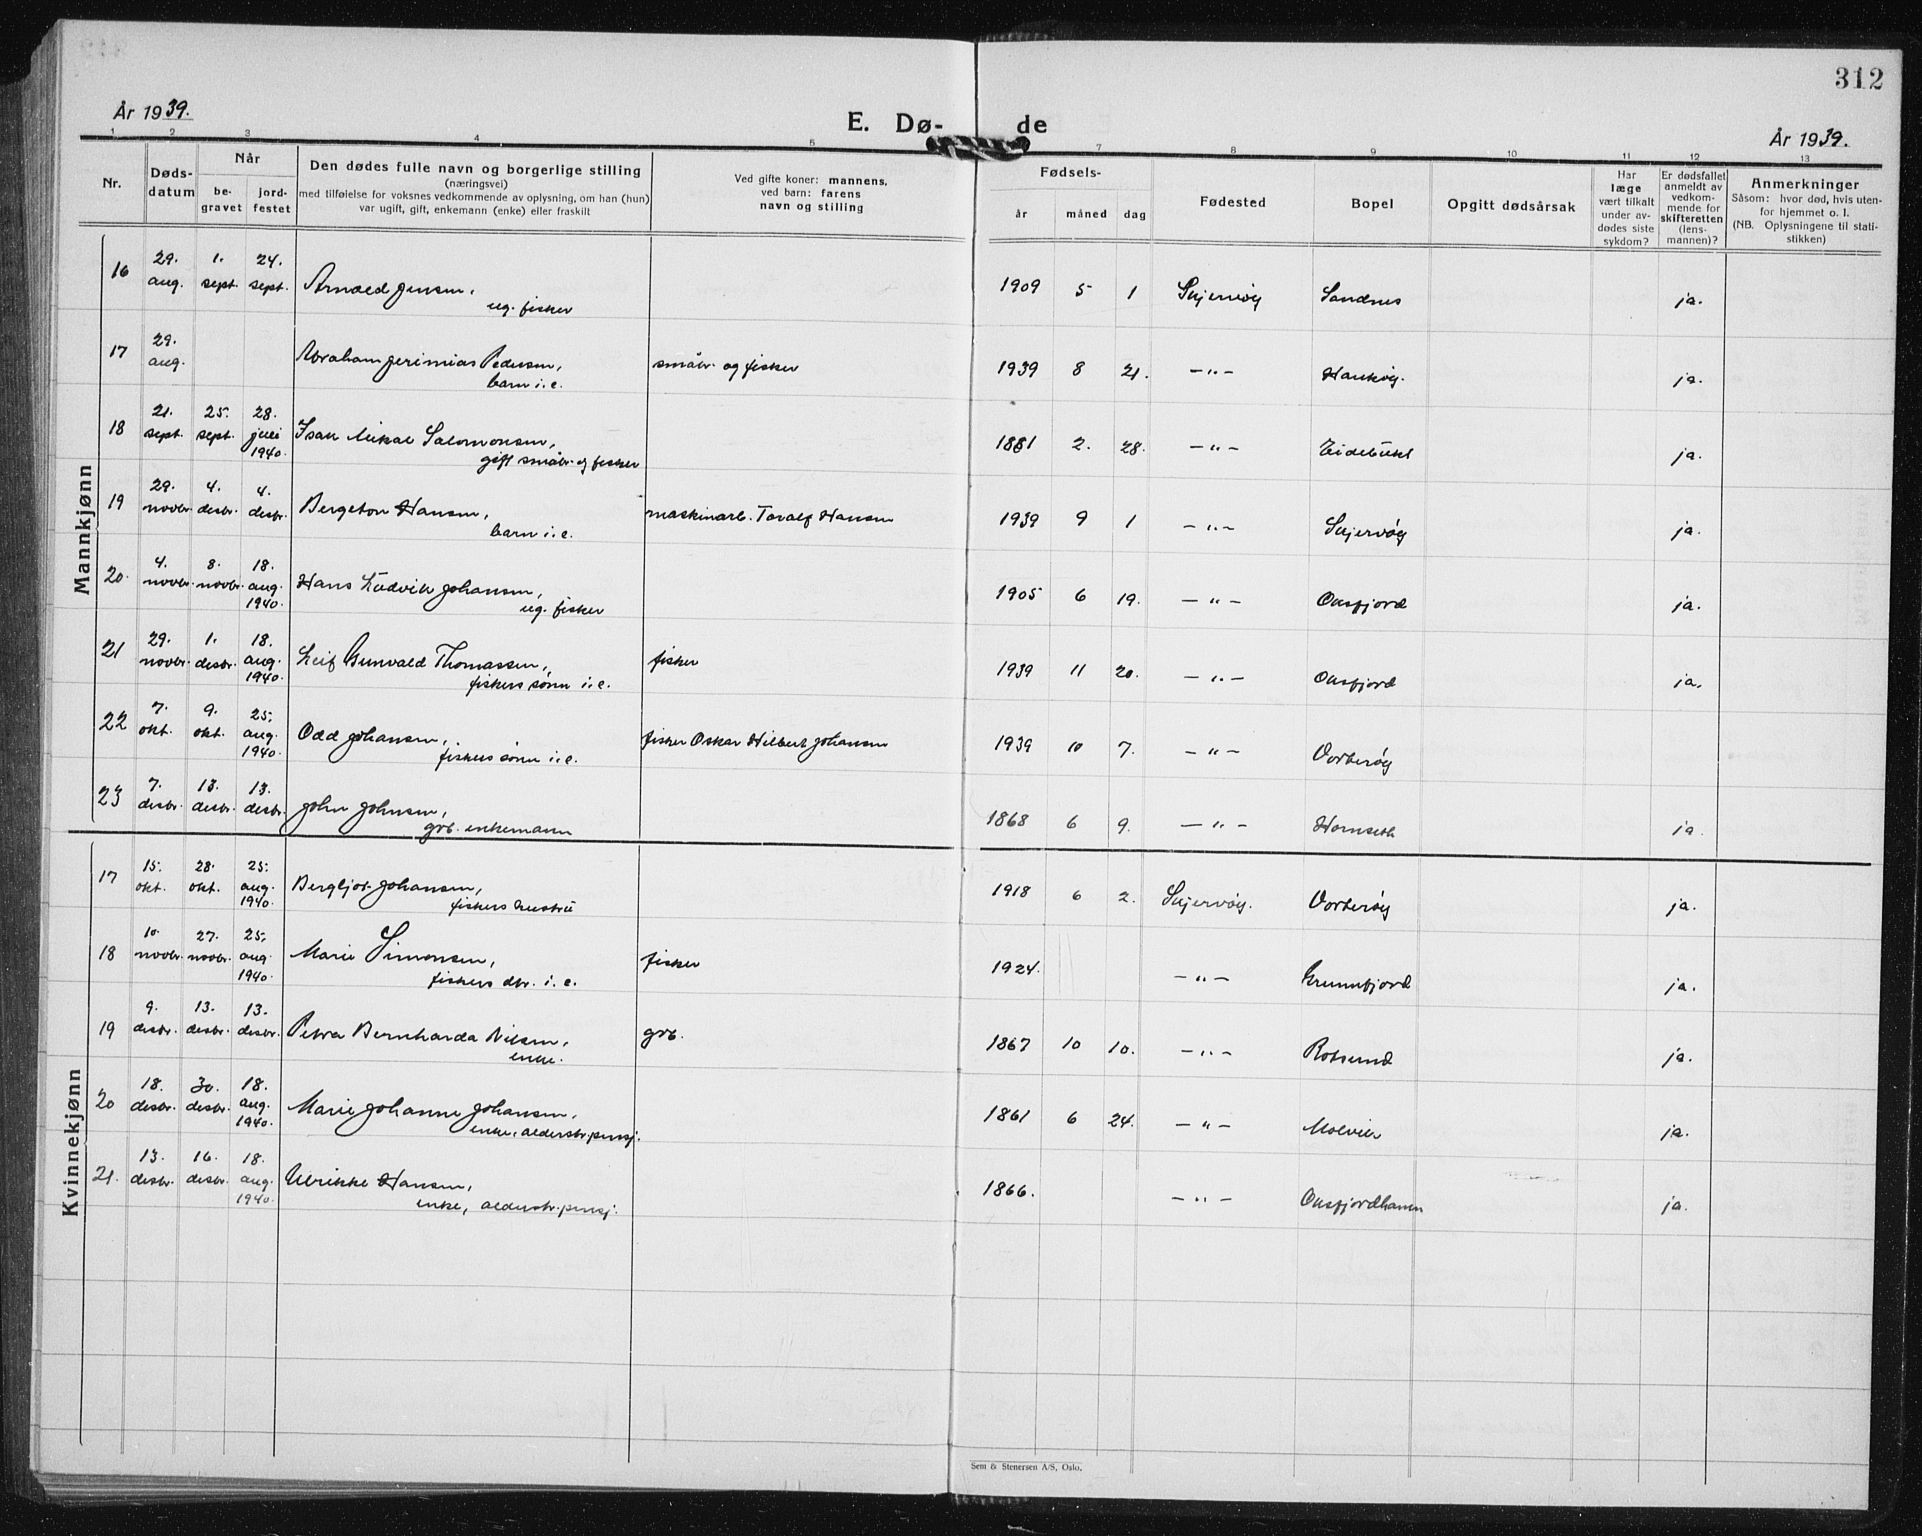 312
År 1939.
E. Dø- de
År 1939.
1 2 3 4 5 7 8 9 10 11 12 13
Nr.
Døds-
datum
Når
be-
gravet
jord-
festet
Den dødes fulle navn og borgerlige stilling
(næringsvei)
med tilføielse for voksnes vedkommende av oplysning, om han (hun)
var ugift, gift, enkemann (enke) eller fraskilt
Ved gifte koner: mannens,
ved barn: farens
navn og stilling
Fødsels-
år måned dag
Fødested
Bopel
Opgitt dødsårsak
Har
læge
vært tilkalt
under av-
dødes siste
sykdom?
Er dødsfallet
anmeldt av
vedkom-
mende for
skifteretten
(lens-
mannen)?
Anmerkninger
Såsom: hvor død, hvis uten-
for hjemmet o. l.
(NB. Oplysningene til stati-
stikken)
Mannkjønn
16 29. aug. 1. sept. 24. sept. Arnold Jensen, 1909 5 1 Skjervøy Sandnes ja.
ug. fisker
17 29. aug. Abraham Jerimias Pedersen, småbr. og fisker 1939 8 21. —"— Haukøy. ja.
barn i.e.
18 21. sept. 25. sept. 28. juli 1940. Isak Mikal Salomonsen, 1881 2. 28. —"— Eidebukt ja.
gift småbr. og fisker
19 29. novbr. 4. desbr. 4. desbr. Bergeton Hansen, maskinarb. Toralf Hansen 1939 9 1 —"— Skjervøy ja.
barn i.e.
20. 4. novbr. 8. novbr. 18. aug. 1940. Hans Ludvik Johansen, 1905 6 19. —"— Oksfjord ja.
ug. fisker
21 29. novbr. 1. desbr. 18. aug. 1940. Leif Gunvald Thomassen, fisker 1939 11 20. —"— Oksfjord ja.
fiskers sønn i.e.
22 7. okt. 9. okt. 25. aug. 1940. Odd Johansen, fisker Oskar Hilbert Johansen 1939 10 7. —"— Vorterøy
fiskers sønn i.e.
23 7. desbr. 13. desbr. 13. desbr. John Johnsen, 1868 6 9. —"— Hamseth ja.
grb. enkemann
Kvinnekjønn
17 15. okt. 28. okt. 25. aug. 1940. Bergljot Johansen, 1918 6 2. Skjervøy. Vorterøy ja.
fiskers hustru
18 10. novbr. 27. novbr. 25. aug. 1940. Marie Simonsen, fisker 1924. —"— Grunnfjord ja.
fiskers dtr. i.e.
19 9. desbr. 13. desbr. 13. desbr. Petra Bernharda Nilsen, grb. 1867 10 10. —"— Rotsund ja.
enke.
20 18. desbr. 30. desbr. 18. aug. 1940. Marie Johanne Johansen, 1861 6 24. —"— Molvik ja.
enke, alderstr.pensj.
21. 13. desbr. 16. desbr. 18. aug. 1940. Ulrikke Hansen, 1866. —"— Oksfjordhamn ja.
enke, alderstr.pensj.
Sem & Stenersen A/S, Oslo.